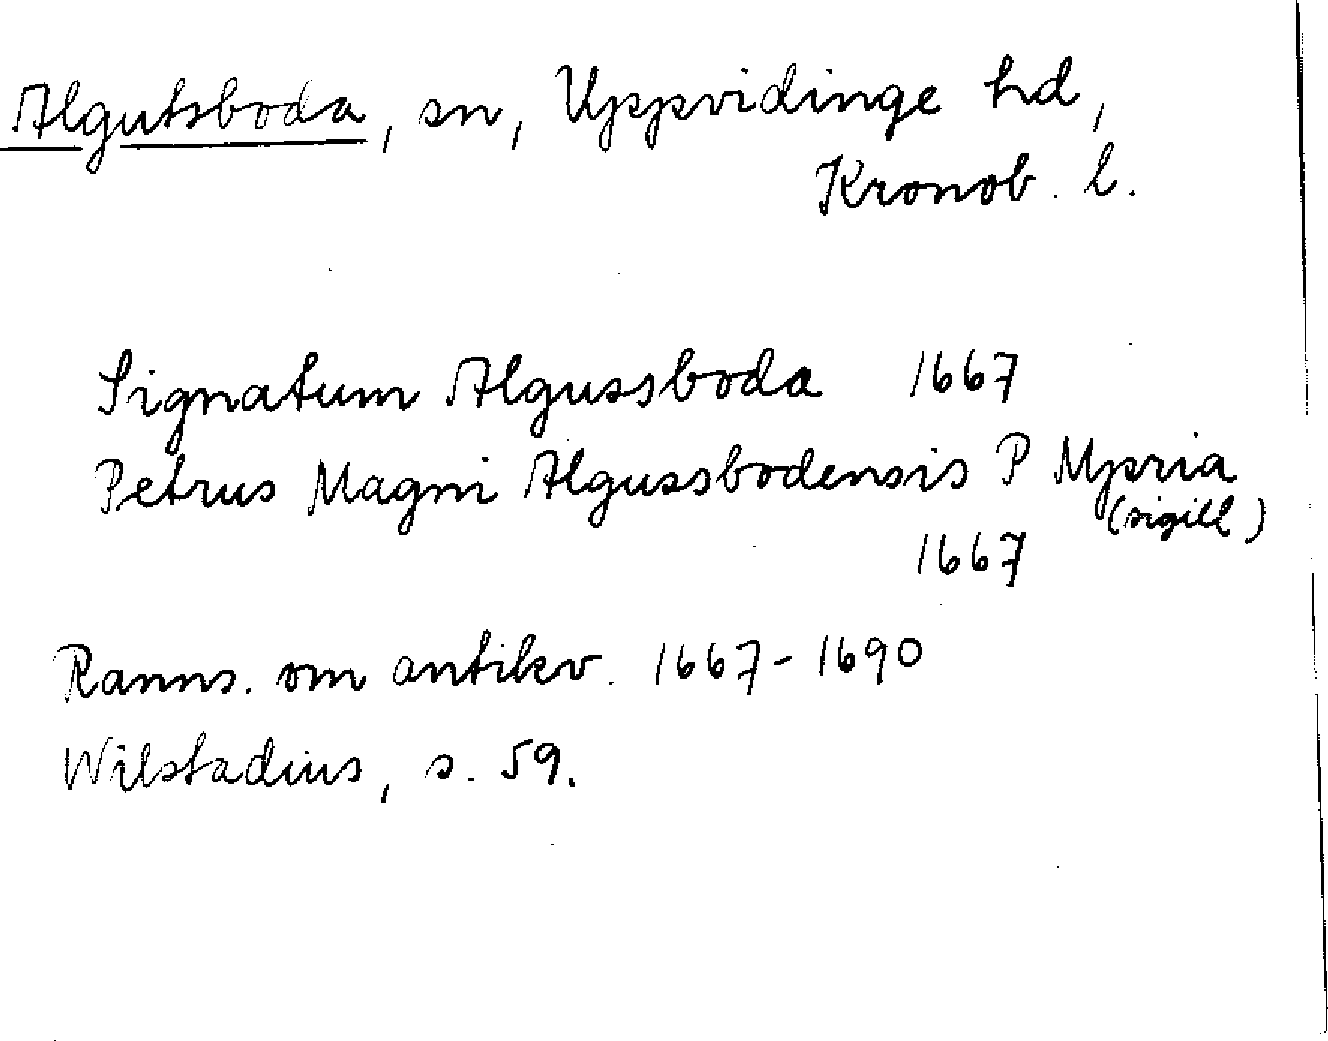 Algutsboda, sn, Uppvidinge hd,
Kronob. l.
Signatum Algussboda 1667
Petrus Magni Algussbodensis P Mpria
(sigill)
1667
Ranns. om antikv. 1667-1690
Wilstadius, s. 59.